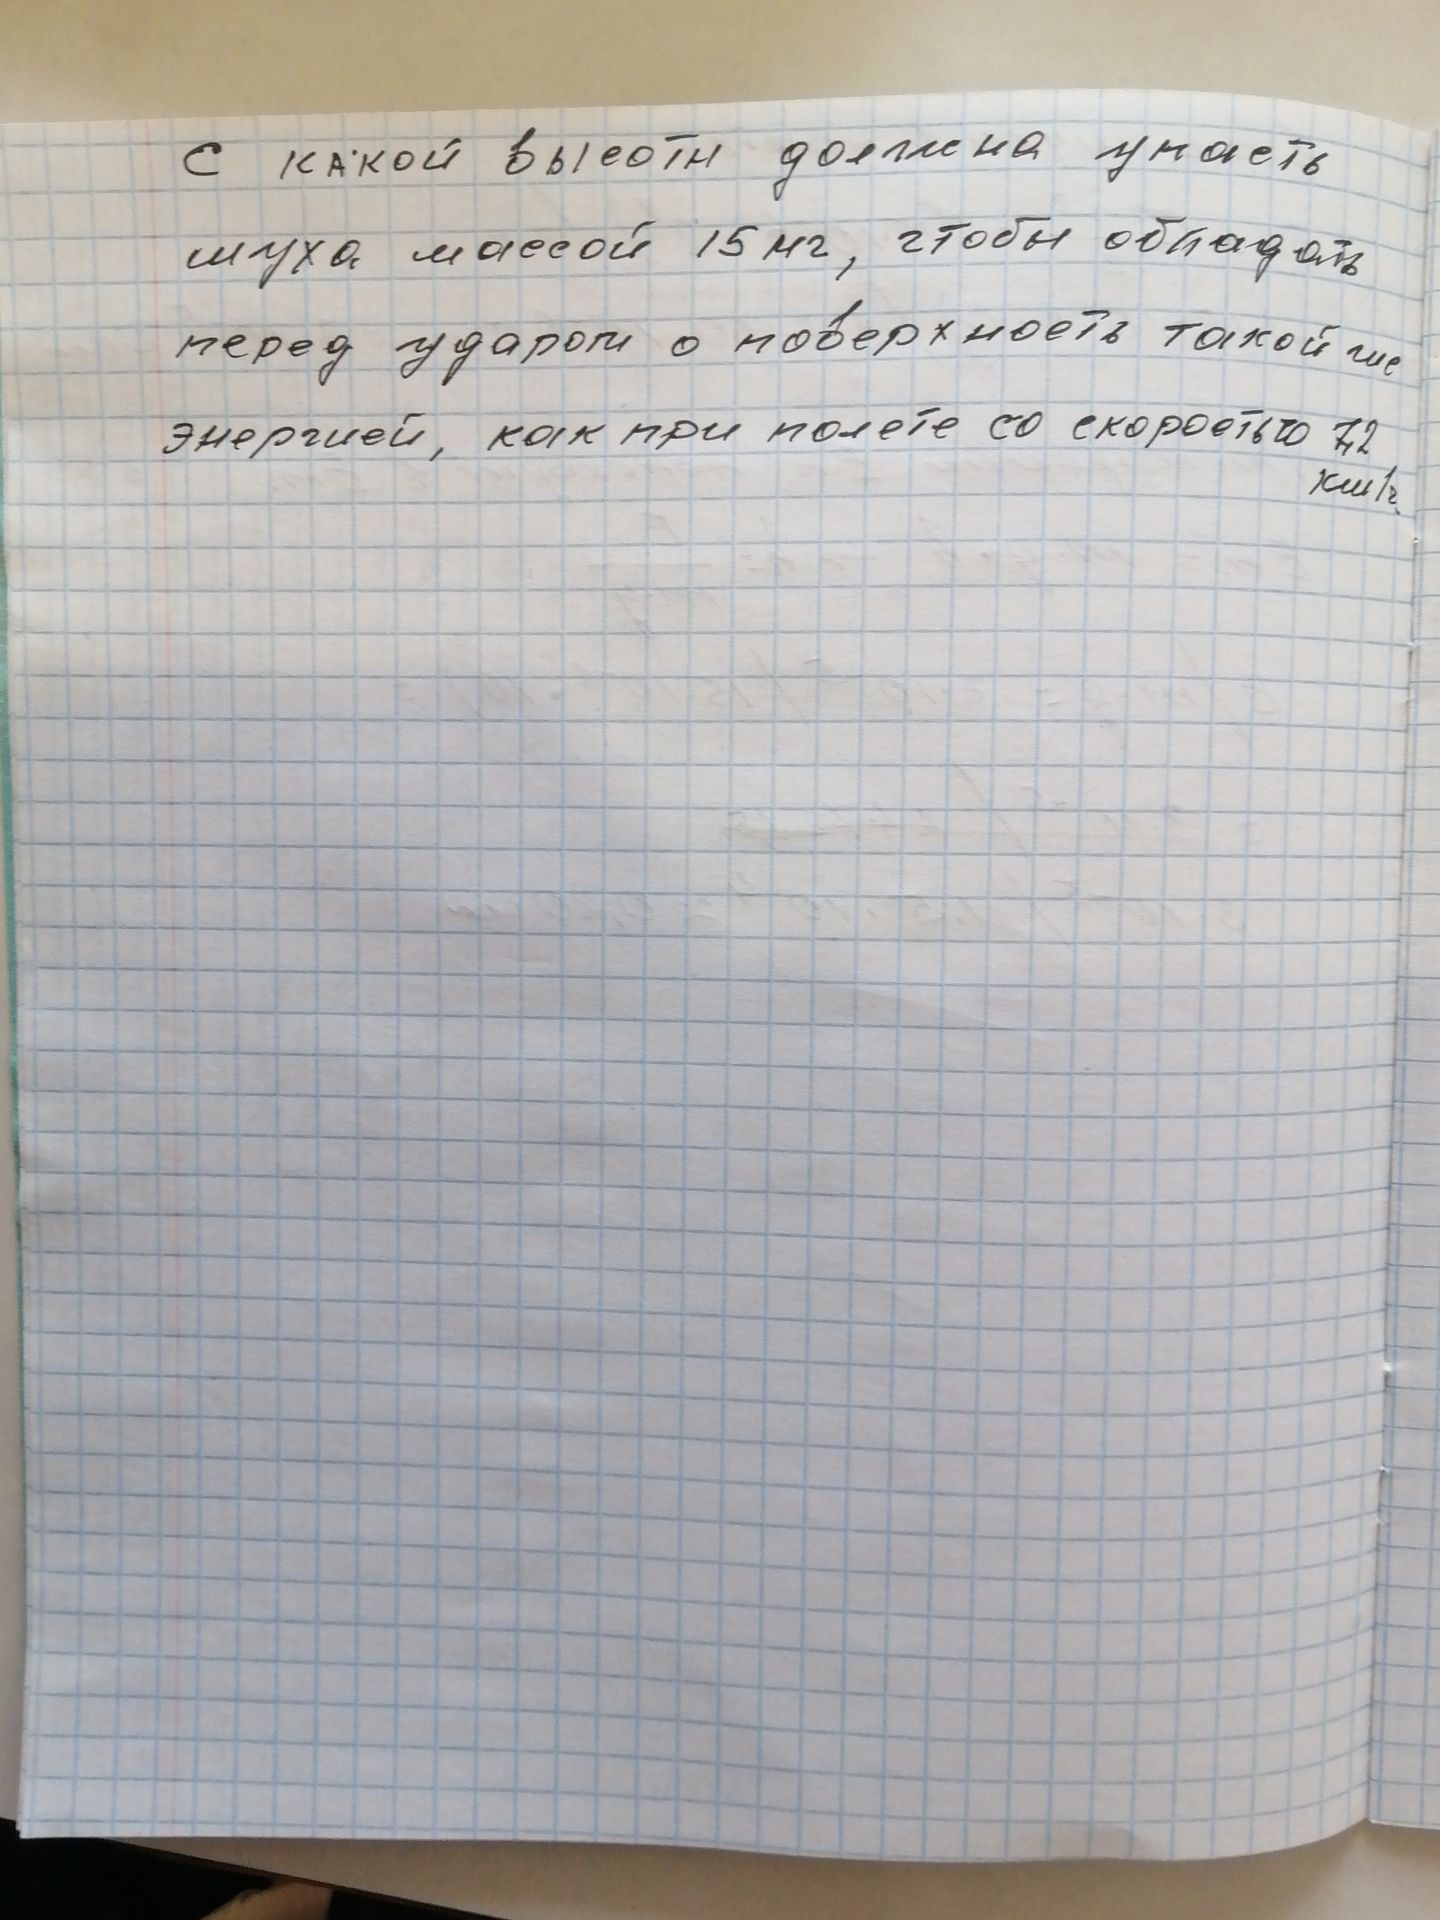 С какой высоты должна упасть
муха массой 15 мг, чтобы обладать
перед ударом о поверхность такой же
энергией, как при полете со скоростью 7,2
км/ч.